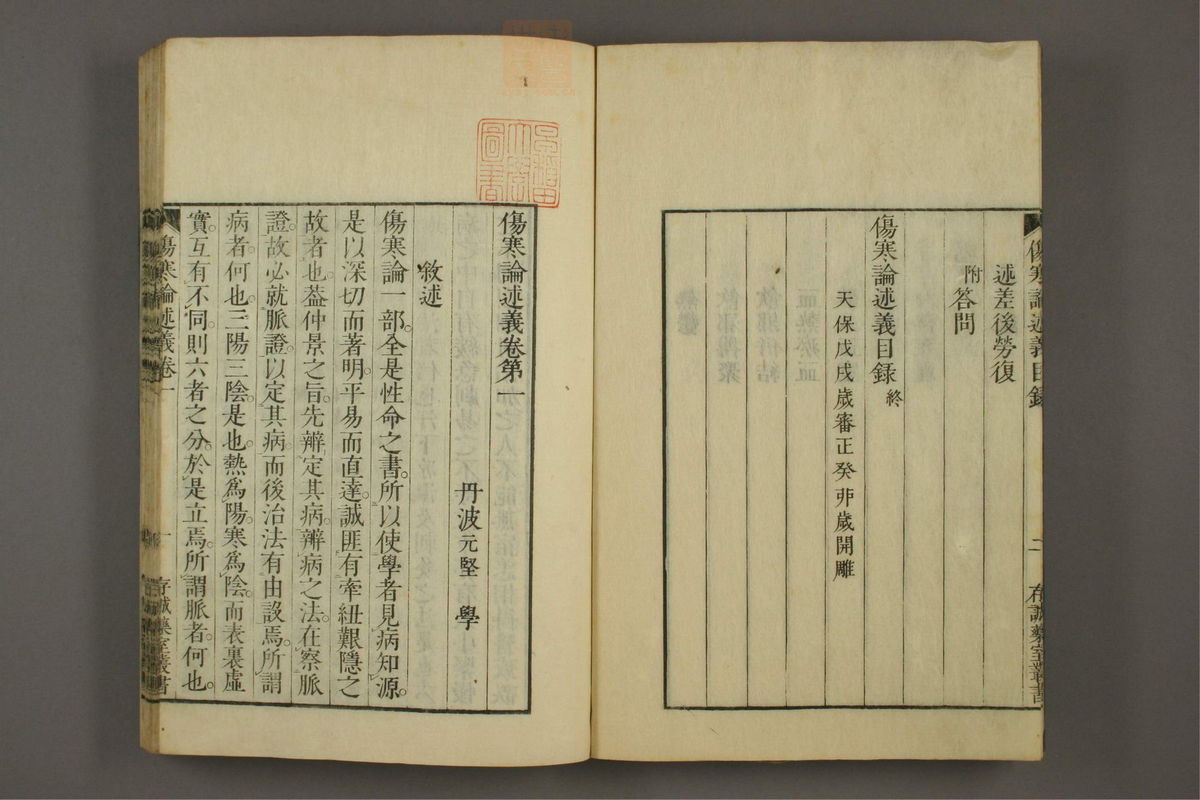 傷寒論述義目錄
二
存誠藥室叢書
述差後勞復
附答問
傷寒論述義目録終
天保戊戌歲審正癸丱歲開雕
傷寒論述義卷第一
丹波元堅 學
敘述
傷寒論一部。全是性命之書。所以使學者見病知源。
是以深切而著明。平易而直達。誠匪有牽紐艱隱之
故者也。葢仲景之旨。先辨定其病。辨病之法。在察脈
證。故必就脈證。以定其病。而後治法有由設焉。所謂
病者。何也。三陽三陰。是也。熱爲陽。寒爲陰。而表裏虛
實。互有不同。則六者之分。於是立焉。所謂脈者。何也。
傷寒論述義卷一
一
存誠藥室叢書
早稲田
大學
圖書